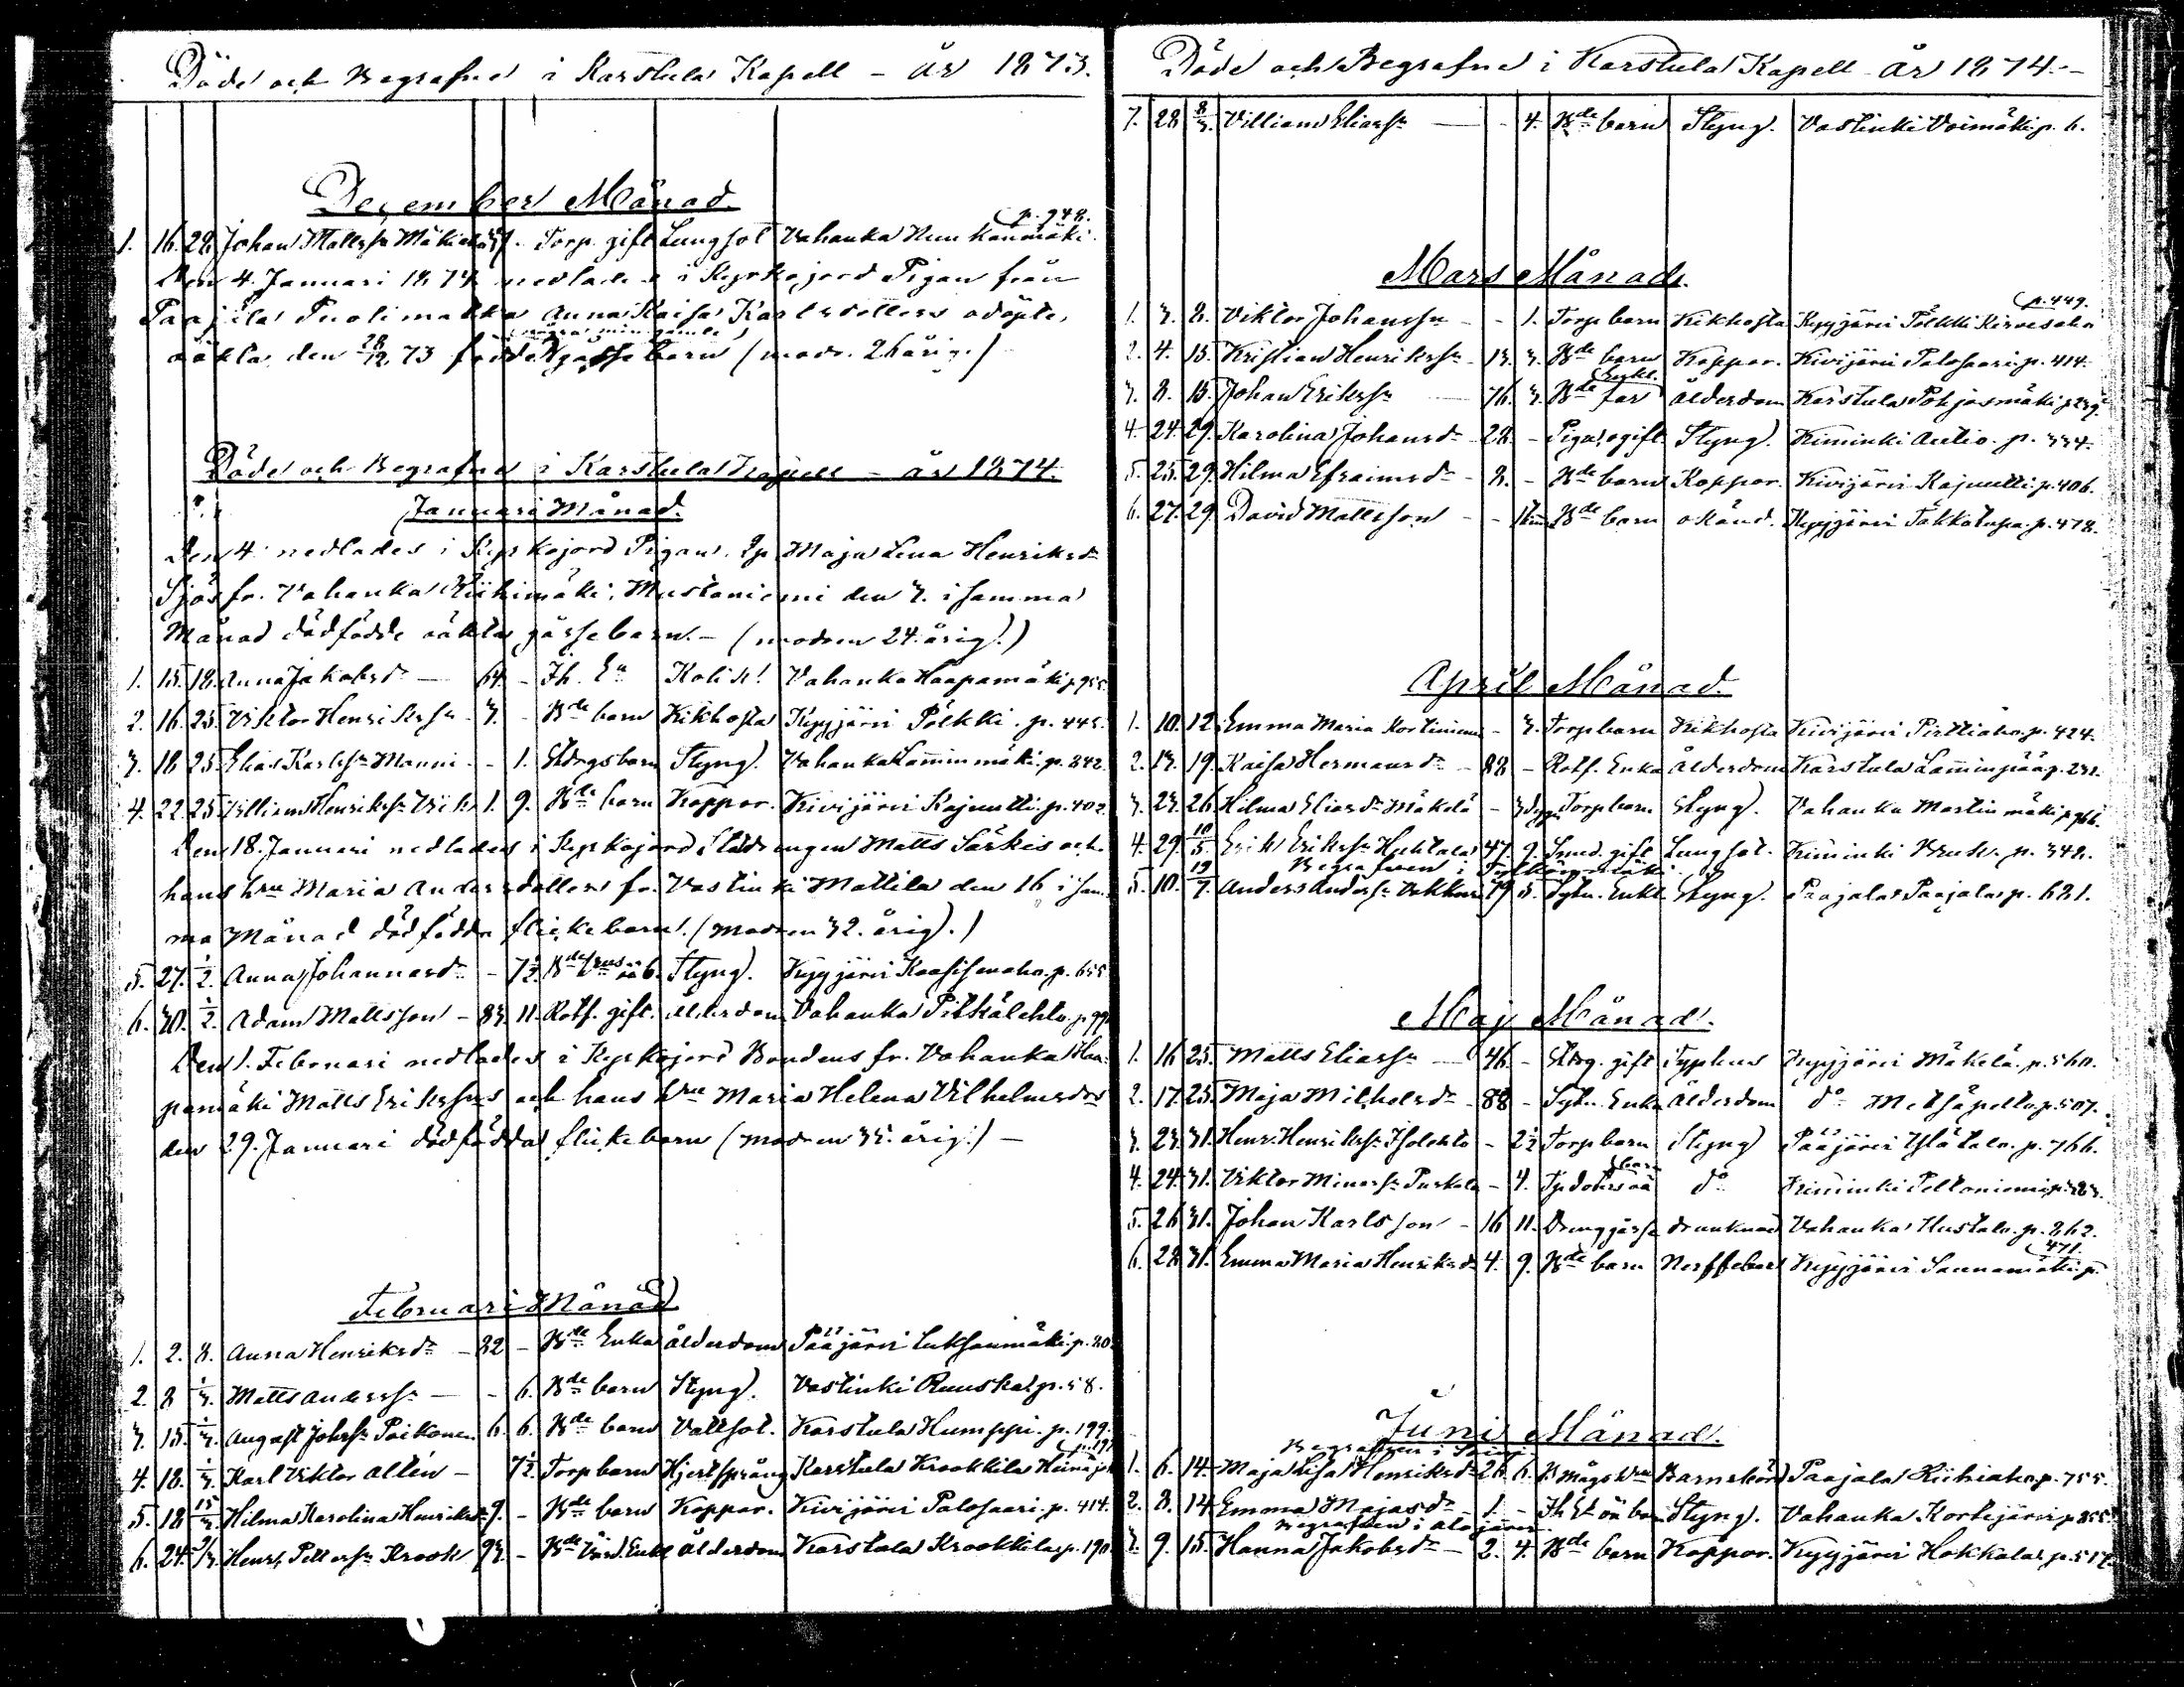 Döde och Begrafne i Karstula Kapell - år 1873.
December Månad.
(p. 948.
1. 16. 28. Johan Mattsſn Torp. gift Lungsot Vahanka
Den 4. Januari 1874 nedlades i Kyrkojord Pigan från
Paajala Puolimatka Anna Kaisa Karlsdotters odöpte,
oäkta, den 28/12 73 födde gossebarn (modr. 26 årig.)
Döde och Begrafne i Karstula Kapell - år 1874.
Januari Månad.
Den 4 nedlades i Kyrkojord Pigans Maja Lena Henriksdr
fr. Vahanka Mustaniemi den 3. i samma
Månad dödfödde oäkta gossebarn. - (modren 24. årig.)
1. 15. 18. Anna Jakobsdr - 64. - Kolik! Vahanka Haapamäki p. 955.
2. 16. 25. Viktor Henriksſn 3. - Bde barn Kikhosta Kyyjärvi Pölkki. p. 445.
3. 18 25. Elias Karlsſn Manni - - 1. barn Styng. Vahanka Lamminmäki p. 842
4. 22. 25. Villiam Henriksſn 1. 9. Bde barn Koppor. Kivijärvi Kajuutti. p. 402
Den 18. Januari nedlades i Kyrkojord Matts Särkis och
hans hru Maria Andersdotters fr. Vastinki Mattila den 16 i sam-
ma Månad dödfödda flickebarn. (modren 32. årig.)
5. 27. 1/2. Anna Johannasdr - 7½. Styng. Kyyjärvi p. 655
6. 30. 1/2. Adam Mattsson - 83. 11. Rotf. gift. Ålderdom Vahanka Pitkälehto. p. 991
Den 1. Februari nedlades i Kyrkojord Bondens fr. Vahanka Haa-
pamäki Matts Eriksſns och hans hru Maria Helena Vilhelmsdrs
den 29. Januari dödfödda flickebarn (modren 35. årig.) -
Februari Månad
1. 2. 8. Anna Henriksdr - 82 - Bde Enka ålderdom Pääjärvi p. 80
2. 8 1/3. Matts Andersſn - - 6. Bde barn Styng. Vastinki Ruuska p. 58.
3. 15. 1/3. August Johsſn Poikonen 6. 6. Bde barn Vattsot. Karstula Humppi. p. 199.
4. 18. 1/3. Karl Viktor Altén - 7½. Torp barn Hjertsprång Karstula Krookkila
5. 18 15/3. Hilma Karolina Henriksdr 9. - Bde barn Koppor. Kivijärvi Palosaari. p. 414.
6. 24. Henr. Pettersſn Krook 93. - Ålderdom Karstula Krookkila p. 190
Döde och Begrafne i Karstula Kapell år 1874. -
7. 28 8/3. Villiam Eliasſn - - 4. Bde barn Styng. Vastinki Voimäki p. 6.
Mars Månad.
(p. 449.
1. 3. 8. Viktor Johansſn - - 1. Torp barn Kikhosta Kyyjärvi Pölkki Kirvesaho
2. 4. 15. Kristian Henriksſn - 13. 3. Bde barn Koppor. Kivijärvi Palosaari p. 414.
3. 8. 15. Johan Eriksſn 76. 3. Bde far Enkl. ålderdom Karstula Pohjosmäki p. 239.
4. 24. 29. Karolina Johansdr 28. - Piga, ogift Styng. Kiminki Autio. p. 334.
5. 25. 29. Hilma Efraimsdr - 8. - Bde barn Koppor. Kivijärvi Kajuutti. p. 406.
6. 27. 29 David Mattsson - - Bde barn okänd. Kyyjärvi Takkatupa p. 478.
April Månad.
1. 10. 12. Emma Maria Kortiniemi - 3. Torp barn Kikhosta Kivijärvi Pirttiaho. p. 424.
2. 13. 19. Kaisa Hermansdr 88 - Rotf. Enka Ålderdom Karstula Lamminpää p. 231.
3. 23. 26. Hilma Eliasdr Mäkelä - 3 dagar Torp barn Styng. Vahanka Martinmäki p. 966.
4. 29. 10/5. Erik Eriksſn Huhtala 47. 9. Smed. gift Lungsot. Kiminki Bruk. p. 342.
Begrafven i
5. 10. 19/7. Anders Andersſn 79 5. Sytn. Enkl Styng. Paajala Paajala p. 621.
Maj Månad.
1. 16 25. Matts Eliasſn - 46. - gift Typhus Kyyjärvi Mäkelä. p. 560.
2. 17. 25. Maja Mickelsdr - 88 - Sytn. Enka Ålderdom do Metsäpelto p. 507.
3. 23. 31. Henr. Henriksſn Isolehto - 2½ Torp barn Styng Pääjärvi Ylätalo. p. 766.
4. 24. 31. Viktor Minasſn Purkala - 4. do Kiminki Peltoniemi p. 383.
5. 26 31. Johan Karlsson - 16 11. Drenggosse drunknad Vahanka Uustalo. p. 862.
(471.
6. 28 31. Emma Maria Henriksdr 4. 9. Bde barn Nerffeber Kyyjärvi Saunamäki p.
Juni Månad.
Begrafven i
1. 6. 14. Maja Lisa Henriksdr 26. 6. B mågs hru Barnsbörd Paajala Riihiaho. p. 755.
2. 8. 14. Emma Majasdr 1. - Styng. Vahanka Kortejärvi p. 855.
Begrafven i Alajärvi
3. 9. 15. Hanna Jakobsdr - 2. 4. Bde barn Koppor. Kyyjärvi Hokkala p. 517.